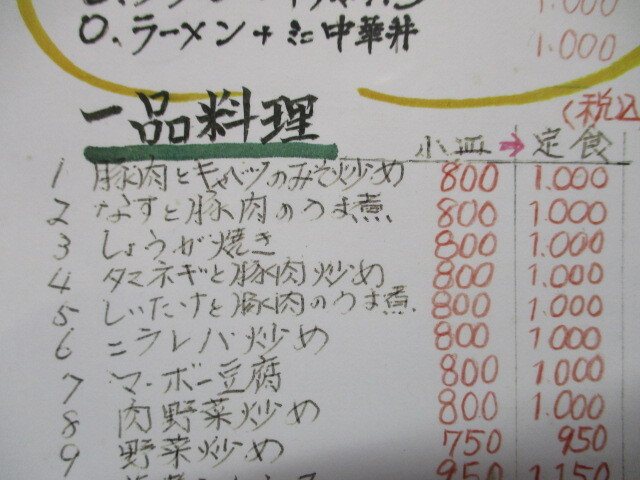 0. ラーメン+ミニ中華丼 1.000
(税込
一品料理 小皿→定食
1 豚肉とキャベツのみそ炒め 800 1.000
2 なすと豚肉のうま煮 800 1.000
3 しょうが焼き 800 1.000
4 タマネギと豚肉炒め 800 1.000
5 しいたけと豚肉のうま煮 800 1.000
6 ニラレバ炒め 800 1000
7 マーボー豆腐 800 1.000
8 肉野菜炒め 800 1.000
9 野菜炒め 750 950
950 1.150